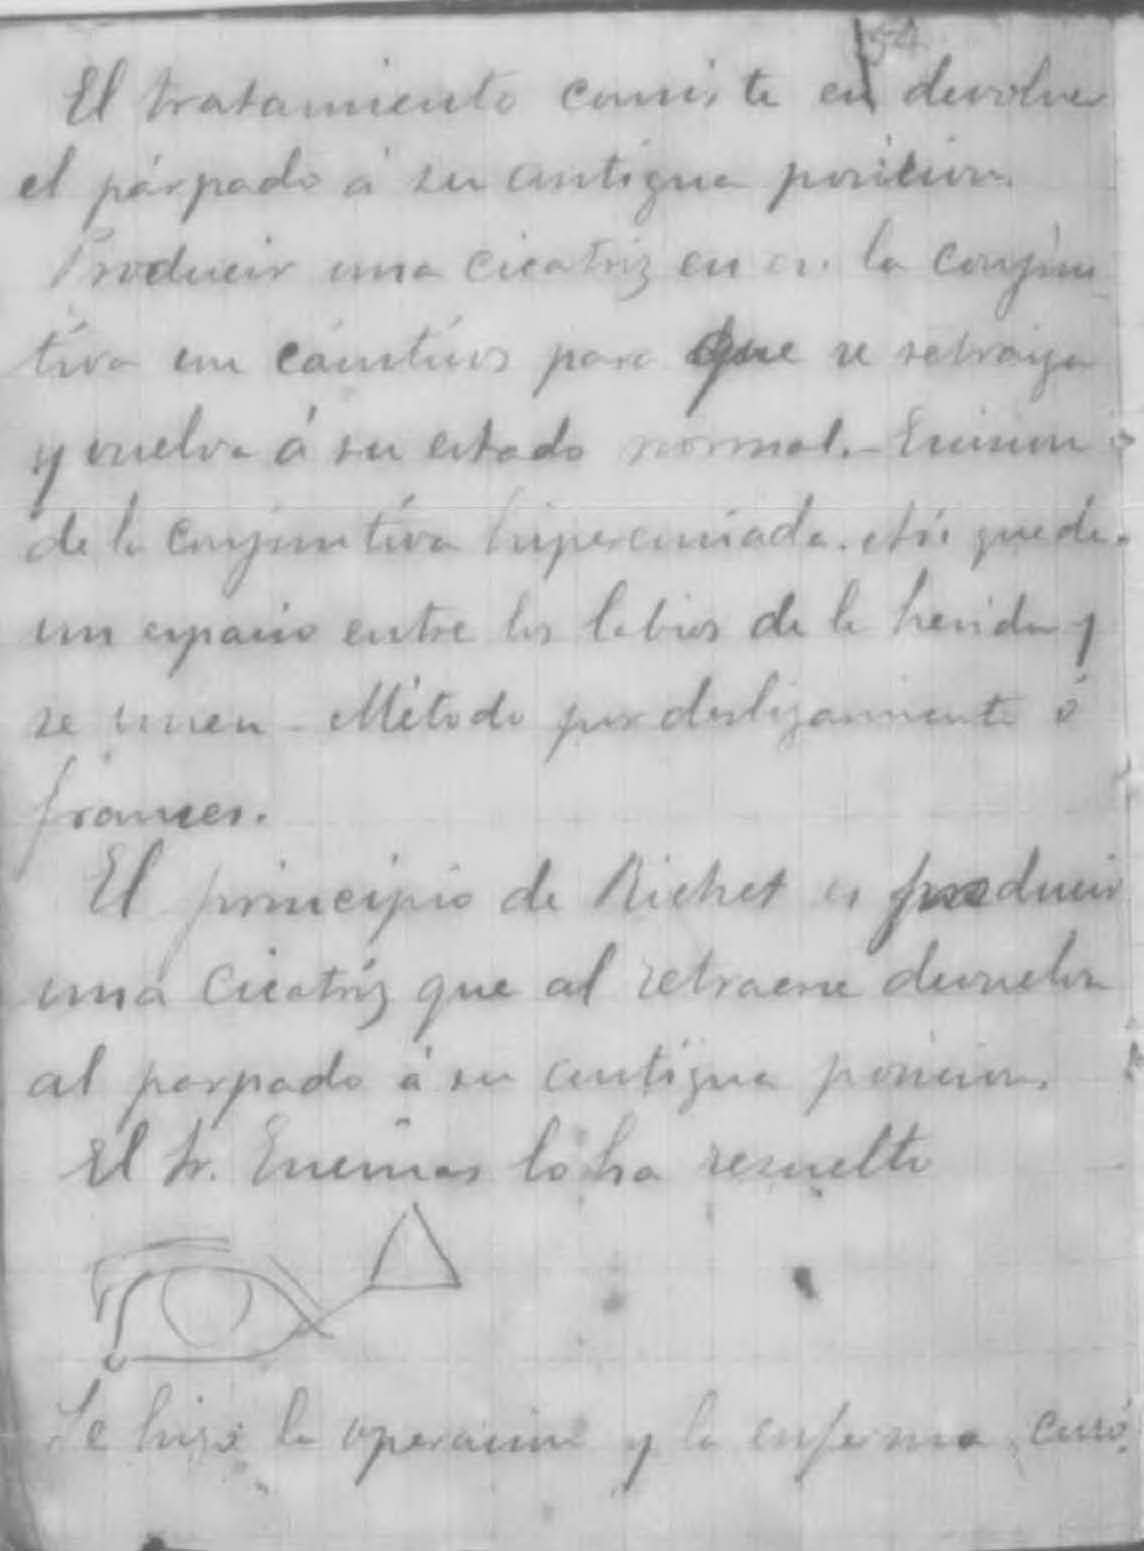 El tratamiento consiste en devolver
el párpado á su antigua posicion.
Producir una cicatriz en la conjun
tiva con cáusticos para que se retraiga
y vuelva á su estado normal.- Escision
de la conjuntiva hiperemiada. Asi queda
un espacio entre los labios de la herida y
se unen - Método por deslizamiento ó
frances.
El principio de Richet es producir
una cicatriz que al retraerse devuelva
al parpado á su antigua posicion.
El Sr. lo ha resuelto
Se hizo la operacion y la enferma curó.